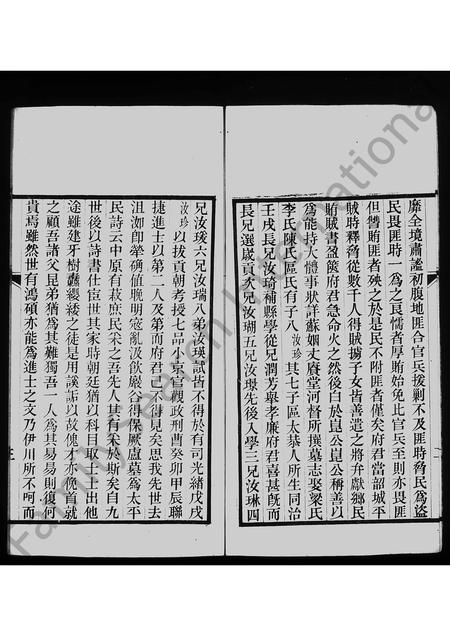 靡全境肅謐初腹地匪合官兵援剿不及匪時脅民為盜
民畏匪時一為之良懦者厚賄始免比官兵至則亦畏匪
但讐賄匪者殃之於是民不附匪者僅矣府君嘗詔城平
賊時釋脅從數千人得賊擄子女皆善遣之將弁獻鄉民
賄賊書盈篋府君急命火之然後白於崑公崑公稱善以
為能持大體事狀詳蘇姻丈賡堂河督所撰墓志娶梁氏
李氏陳氏區氏有子八汝珍其七子區太恭人所生同治
壬戌長兄汝琦補縣學從兄潤芳舉孝廉府君喜甚旣而
長兄選歲貢次兄汝瑚五兄汝璟先後入學三兄汝琳四
兄汝琰六兄汝瑞八弟汝瑛試皆不得於有司光緒戊戌
汝珍以拔貢朝考授七品小京官觀政刑曹癸卯甲辰聯
捷進士以第二人及第而府君已不得見矣思我先世去
沮洳卽犖确値晚明寇亂汲飲巖谷得保厥廬墓為太平
民詩云中原有菽庶民采之吾先人其有采於斯矣自九
世後以詩書仕宦世其家時朝廷猶以科目取士士出他
途雖建牙樹纛纓緌之徒是用譏誚以故傀才亦俛首就
之顧吾諸父昆弟猶為其難獨吾一人為其易易則復何
貴焉雖然世有鴻碩亦能為進士之文乃伊川所不呵而